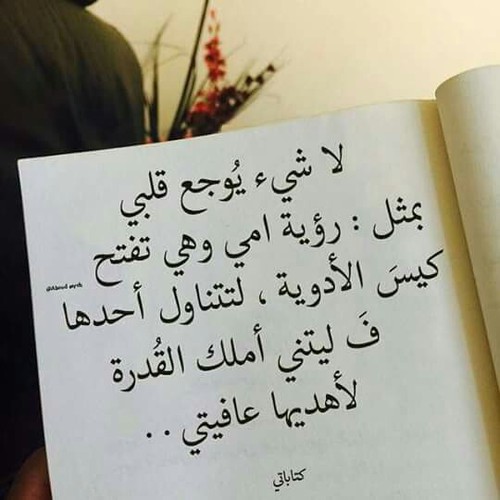 لا شيء يُوجع قلبي
بمثل : رؤية امي وهي تفتح
كيسَ الأدوية ، لتتناول أحدها
فَ ليتني أملك القُدرة
لأهديها عافيتي . .
كتاباتي